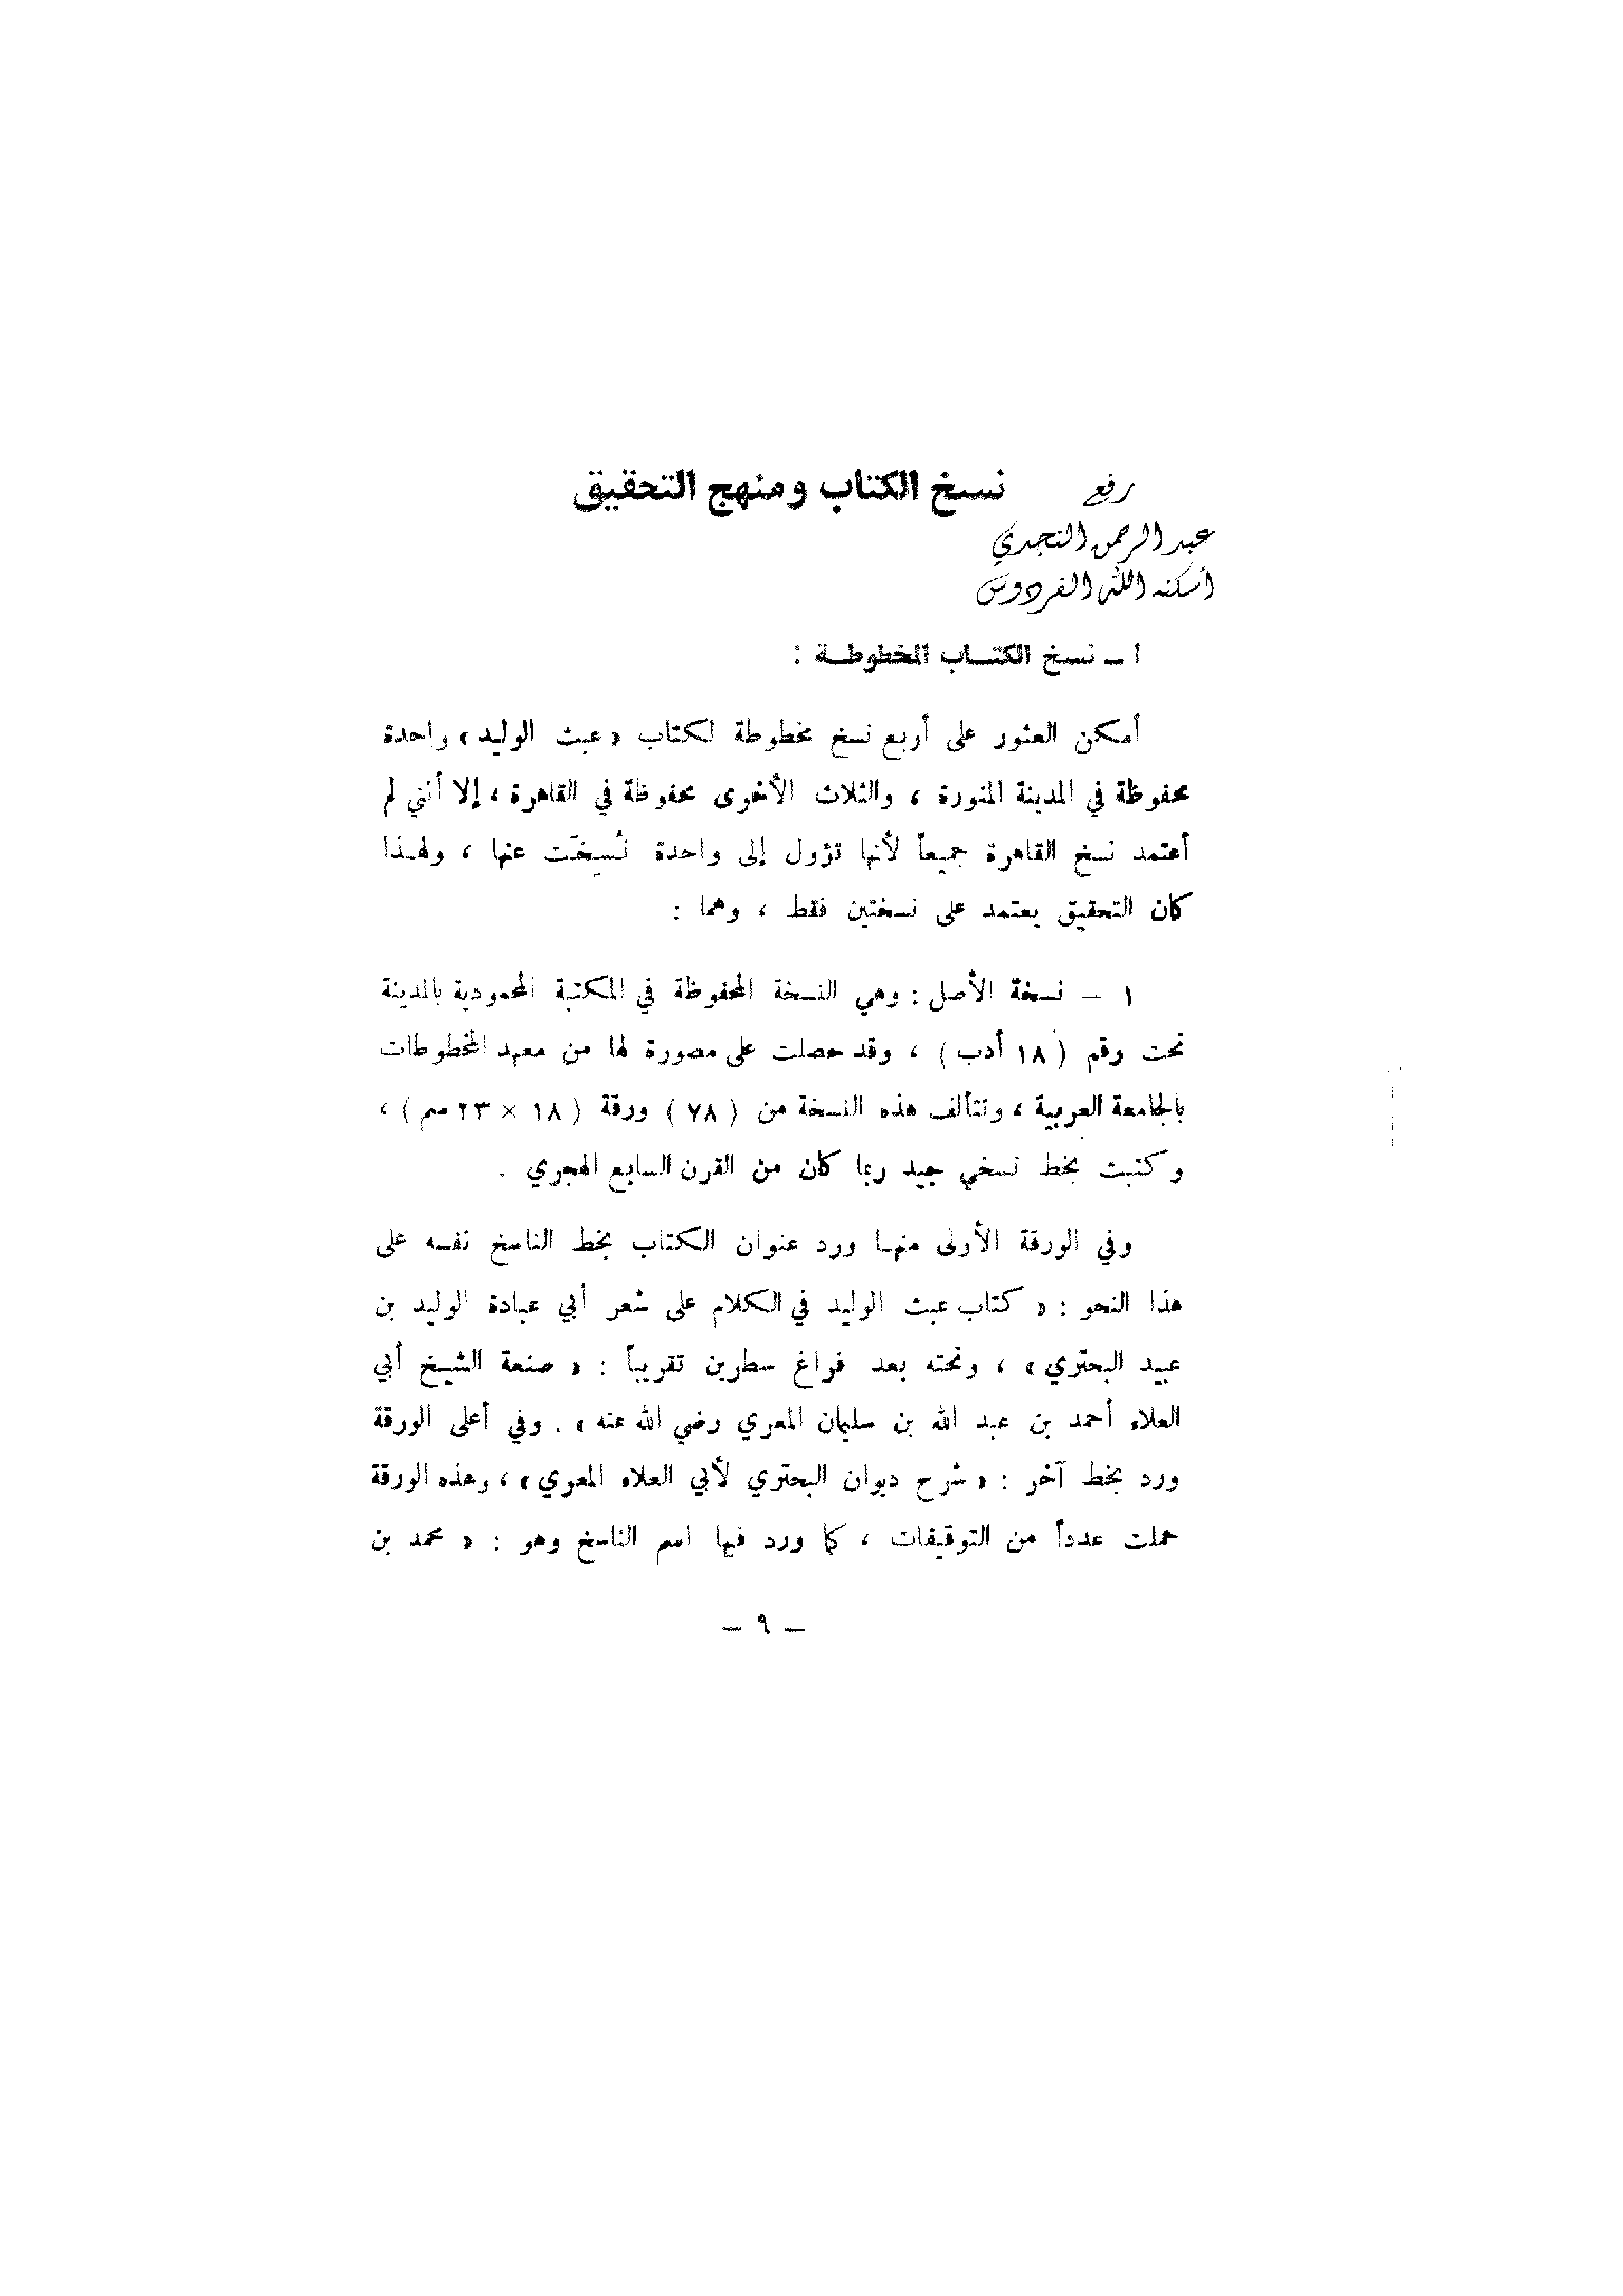 نسخ الكتاب ومنهج التحقيق
رفع
عبد الرحمن النجدي
أسكنه الله الفردوس
ا ــ نسخ الكتــاب المخطوطــة :
أمكن العثور على أربع نسخ مخطوطة لكتاب « عبث الوليد » واحدة
محفوظة في المدينة المنورة ، والثلاث الأخرى محفوظة في القاهرة ، إلا أنني لم
أعتمد نسخ القاهرة جميعاً لأنها تؤول إلى واحدة نُسِخَت عنها ، ولهـذا
كان التحقيق يعتمد على نسختين فقط ، وهما :
١ – نسخة الأصل : وهي النسخة المحفوظة في المكتبة المحمودية بالمدينة
تحت رقم ( ١٨ أدب ) ، وقد حصلت على مصورة لها من معهد المخطوطات
بالجامعة العربية ، وتتألف هذه النسخة من ( ٧٨ ) ورقة ( ١٨ × ٢٣ سم ) ،
وكتبت بخط نسخي جيد ربما كان من القرن السابع الهجري .
وفي الورقة الأولى منهـا ورد عنوان الكتاب بخط الناسخ نفسه على
هذا النحو : « كتاب عبث الوليد في الكلام على شعر أبي عبادة الوليد بن
عبيد البحتري » ، وتحته بعد فراغ سطرين تقريباً : « صنعة الشيـخ أبي
العلاء أحمد بن عبد الله بن سليمان المعري رضي الله عنه » . وفي أعلى الورقة
ورد بخط آخر : « شرح ديوان البحتري لأبي العلاء المعري » ، وهذه الورقة
حملت عدداً من التوقيفات ، كما ورد فيها اسم الناسخ وهو : « محمد بن
– ٩ –